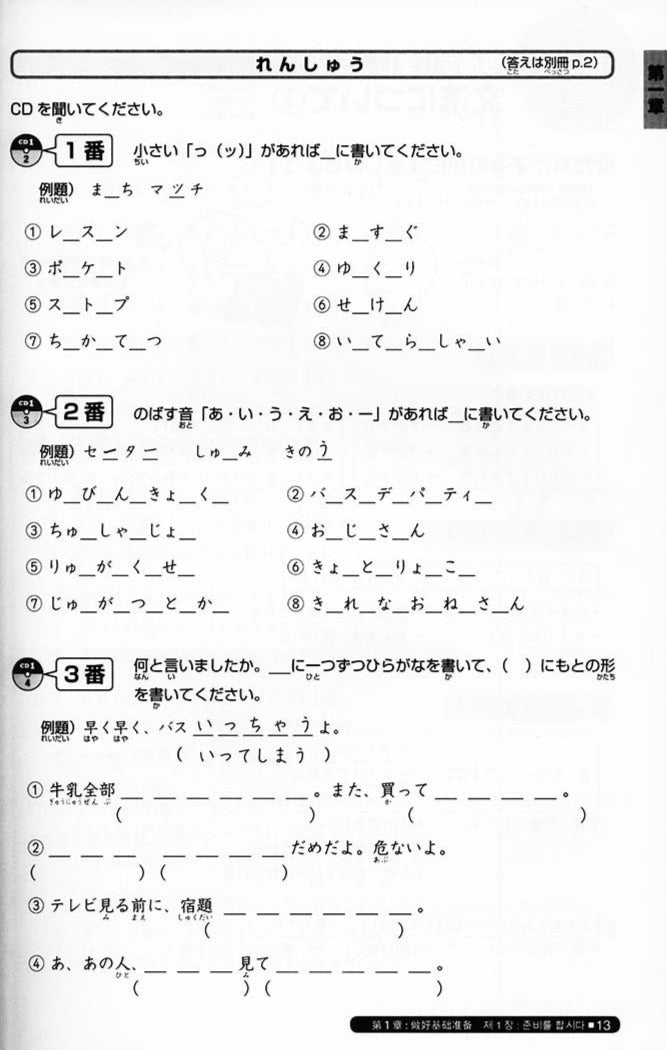 れんしゅう (答えは別冊 p.2)
こた べっさつ
第一章
CD を聞いてください。
き
CD1 2 1番 小さい「っ（ッ）」があれば＿に書いてください。
ちい か
例題） ま＿ち マッチ
れいだい
① レ＿ス＿ン ② ま＿す＿ぐ
③ ポ＿ケ＿ト ④ ゆ＿く＿り
⑤ ス＿ト＿プ ⑥ せ＿け＿ん
⑦ ち＿か＿て＿つ ⑧ い＿て＿ら＿しゃ＿い
CD1 3 2番 のばす音「あ・い・う・え・お・ー」があれば＿に書いてください。
おと か
例題） セーター しゅ＿み きのう
れいだい
① ゆ＿び＿ん＿きょ＿く＿ ② バ＿ス＿デ＿パ＿ティ＿
③ ちゅ＿しゃ＿じょ＿ ④ お＿じ＿さ＿ん
⑤ りゅ＿が＿く＿せ＿ ⑥ きょ＿と＿りょ＿こ＿
⑦ じゅ＿が＿つ＿と＿か＿ ⑧ き＿れ＿な＿お＿ね＿さ＿ん
CD1 4 3番 何と言いましたか。＿に一つずつひらがなを書いて、（ ）にもとの形
なん い ひと か かたち
を書いてください。
か
例題） 早く早く、バス いっちゃうよ。
れいだい はや はや
（ いってしまう ）
① 牛乳全部 ＿ ＿ ＿ ＿ ＿ ＿ 。また、買って ＿ ＿ ＿ ＿ 。
ぎゅうにゅうぜん ぶ か
（ ） （ ）
② ＿ ＿ ＿ ＿ ＿ ＿ ＿ だめだよ。危ないよ。
あぶ
（ ）（ ）
③ テレビ見る前に、宿題 ＿ ＿ ＿ ＿ ＿ ＿ 。
み まえ しゅくだい
（ ）
④ あ、あの人、＿ ＿ ＿ 見て ＿ ＿ ＿ ＿ ＿ 。
ひと み
（ ）（ ）
第1章：做好基础准备 제1장 : 준비를 합시다 ■13